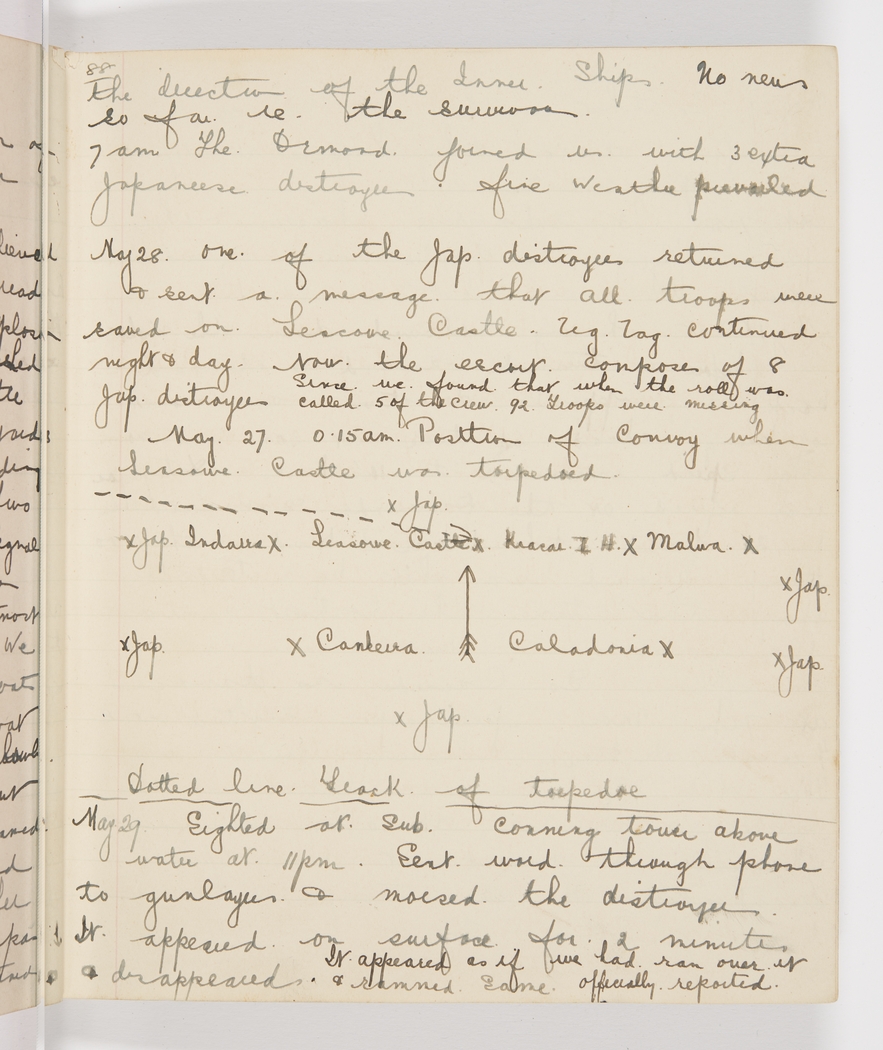 88
the direction of the Inner Ships. No news
so far re. the survivors.
7 am The Ormond. joined us. with 3 extra
Japaneese destroyers. fine weather prevailed
May 28. one. of the Jap. destroyers returned
& sent a. message. that all. troops were
saved on. Leasowe. Castle. Zig. Zag. continued
night & day. Now. the escort. composes of 8
Jap. destroyers Since. we. found that when the roll was.
called. 5 of the crew. 92. Troops were missing
May. 27. 0.15 am. Position of Convoy when
Leasowe. Castle was torpedoed.
x Jap.
x Jap. Indarra X. Leasowe. Castle X. I H. X Malwa. X
x Jap.
x Jap. X Canberra. Caladonia X
x Jap.
x Jap.
Dotted line. Track of torpedoe
May 29. Sighted at. Sub. Conning tower above
water at. 11 pm. Sent. word. through phone
to gunlayers. & morsed. the destroyers.
It. appeared. on surface. for. 2 minutes
& disappeared. It appeared as if we had. ran over. it
& rammed. Same. officially. reported.